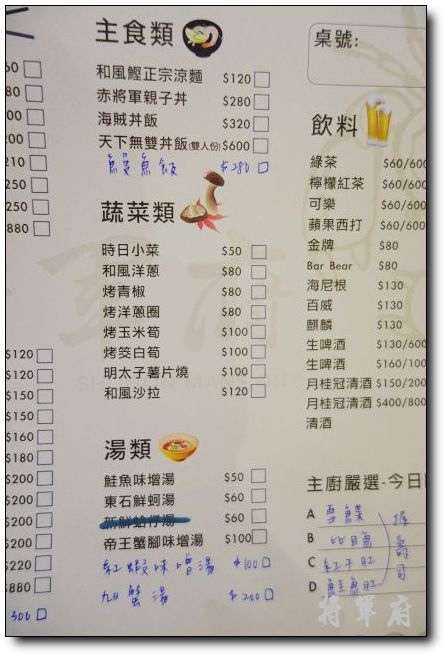 60
$80
$200
210
$250
250
$880
$120
$120
$150
$150
$160
$200
$200
$200
$200
$220
$880
300
主食類
和風鰹正宗涼麵 $120
赤將軍親子丼 $280
海賊丼飯 $320
天下無雙丼飯(雙人份) $600
鰻魚飯 $280
蔬菜類
時日小菜 $50
和風洋蔥 $80
烤青椒 $80
烤洋蔥圈 $80
烤玉米筍 $100
烤筊白筍 $100
明太子薯片燒 $100
和風沙拉 $120
湯類
鮭魚味增湯 $50
東石鮮蚵湯 $60
新鮮蛤仔湯 $60
帝王蟹腳味增湯 $100
紅蝦味噌湯 $100
旭蟹湯 $200
桌號:
飲料
綠茶 $60/600
檸檬紅茶 $60/600
可樂 $60/600
蘋果西打 $60/600
金牌 $80
Bar Bear $80
海尼根 $130
百威 $130
麒麟 $130
生啤酒 $130/600
生啤酒 $160/100
月桂冠清酒 $150/200
月桂冠清酒 $400/800
清酒
主廚嚴選-今日
A
B 比目魚
C 紅干魽
D 鮭魚肚
握壽司
將軍府